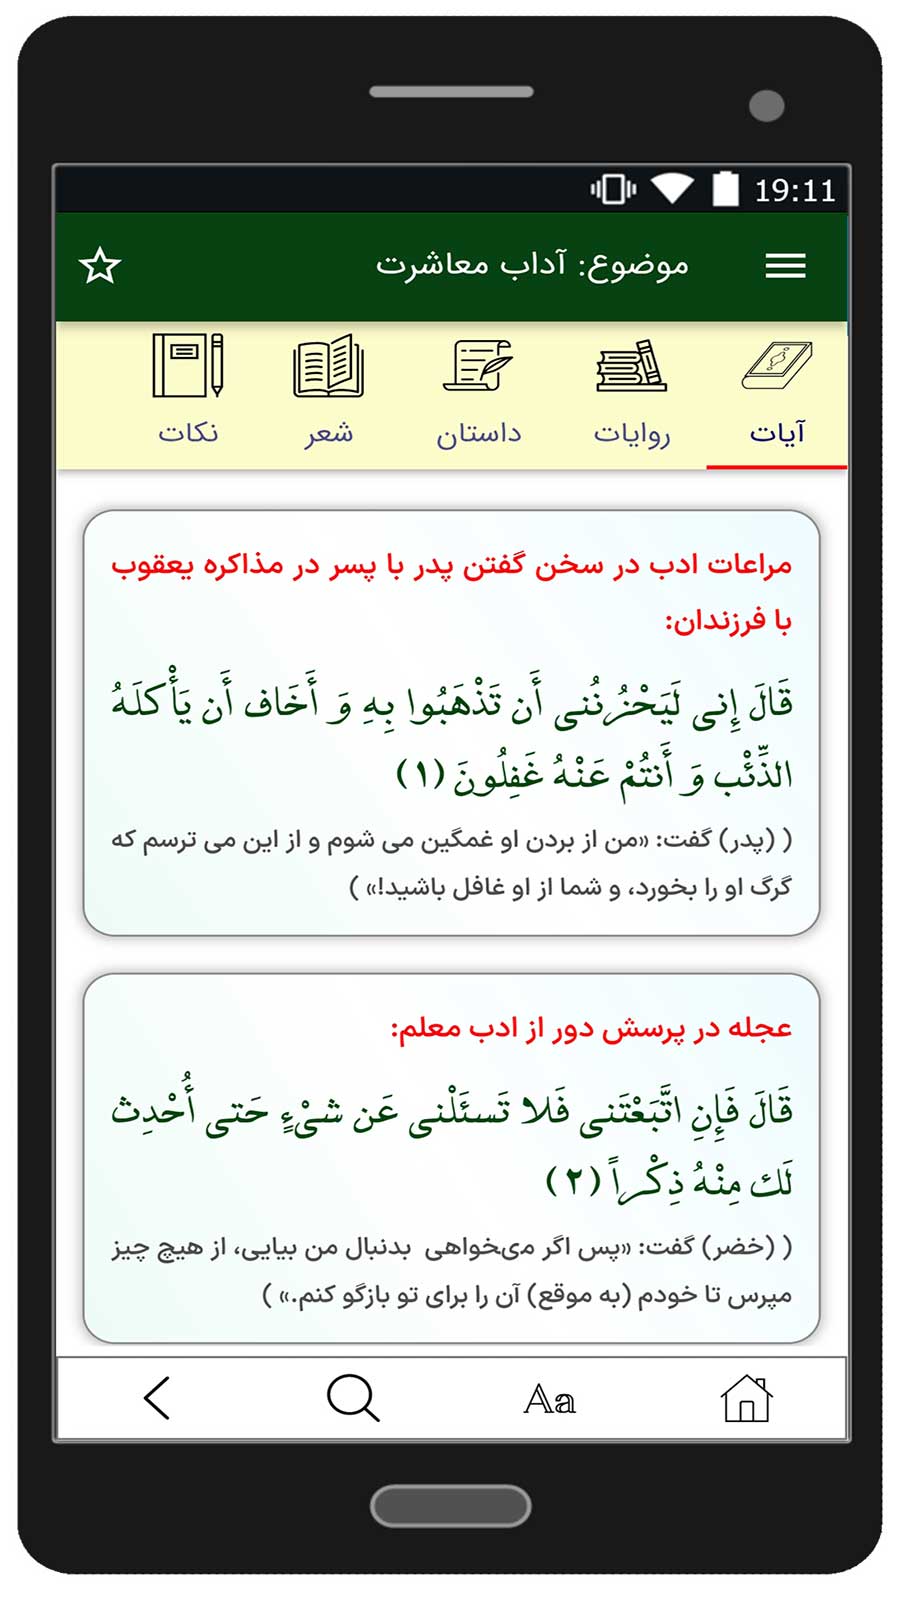 19:11
موضوع: آداب معاشرت
آیات
روایات
داستان
شعر
نکات
مراعات ادب در سخن گفتن پدر با پسر در مذاکره یعقوب
با فرزندان:
قَالَ إِنی لَیَحْزُنُنی أَن تَذْهَبُوا بِهِ وَ أَخَاف أَن یَأْکلَهُ
الذِّئْب وَ أَنتُمْ عَنْهُ غَفِلُونَ (۱)
( (پدر) گفت: «من از بردن او غمگین می شوم و از این می ترسم که
گرگ او را بخورد، و شما از او غافل باشید!» )
عجله در پرسش دور از ادب معلم:
قَالَ فَإِنِ اتَّبَعْتَنی فَلا تَسئَلْنی عَن شیْءٍ حَتی أُحْدِث
لَك مِنْهُ ذِکْراً (۲)
( (خضر) گفت: «پس اگر می‌خواهی بدنبال من بیایی، از هیچ چیز
مپرس تا خودم (به موقع) آن را برای تو بازگو کنم.» )
Aa